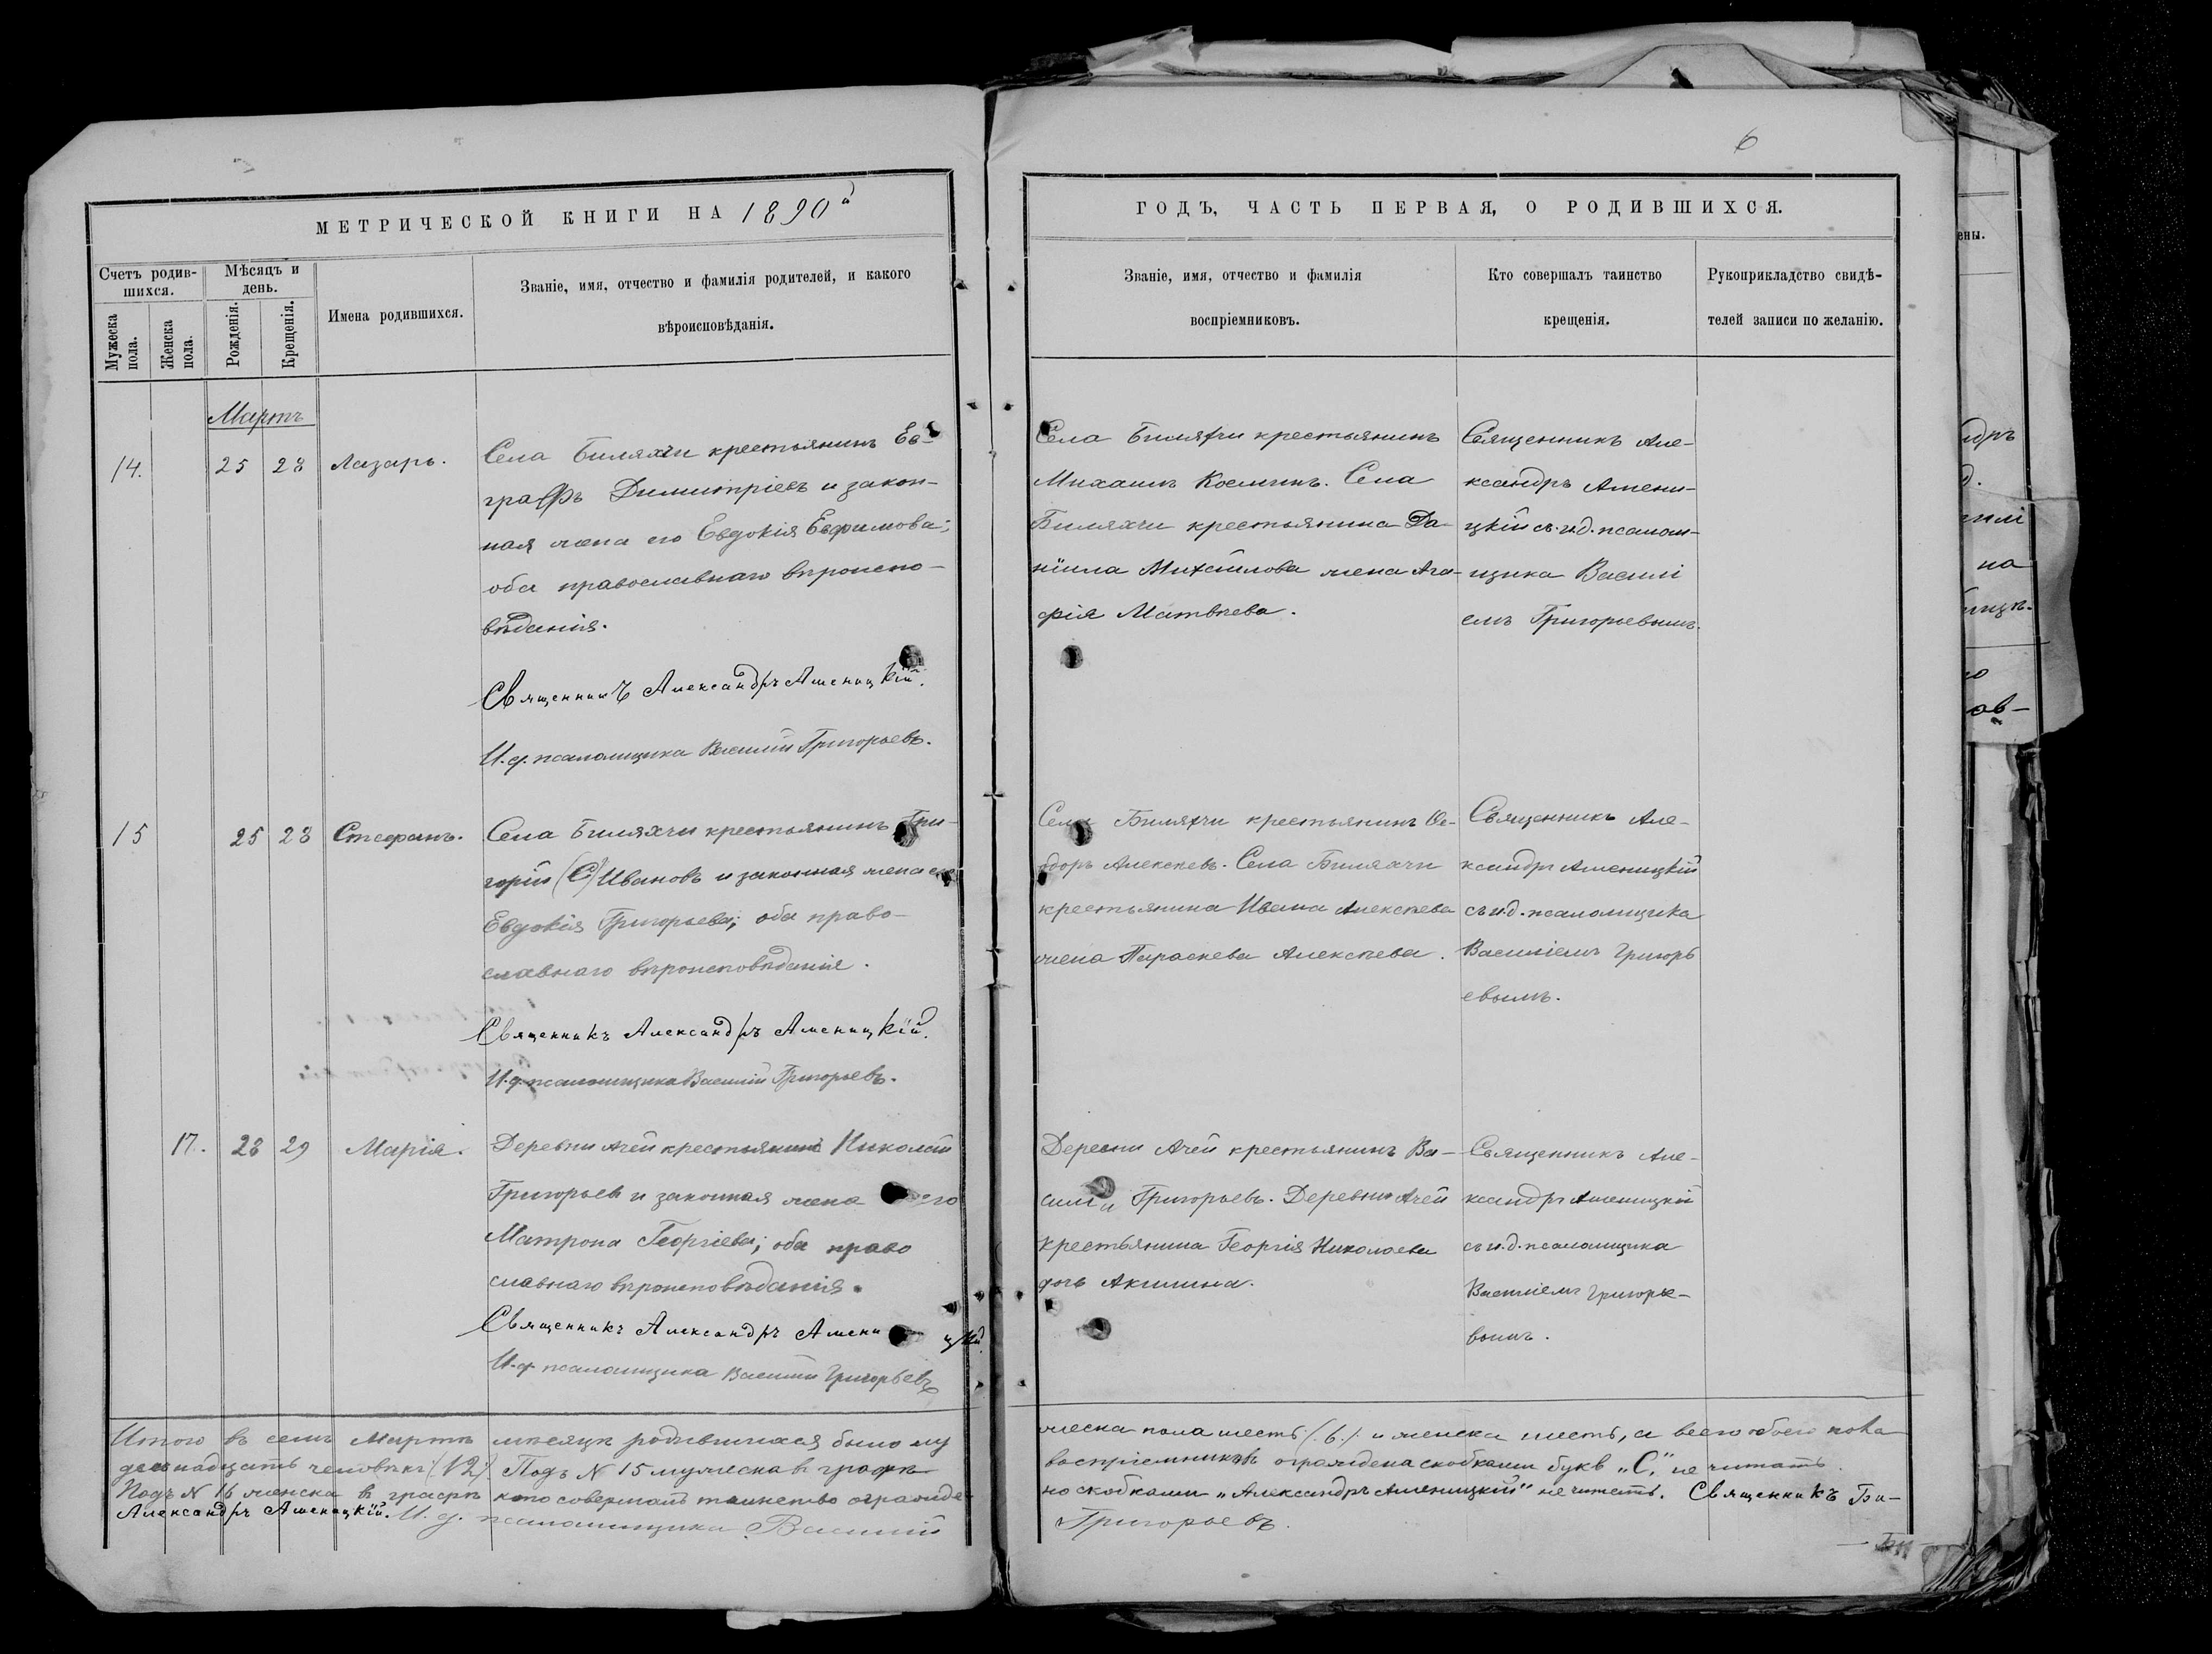 6
МЕТРИЧЕСКОЙ КНИГИ НА 1890й
ГОДЪ, ЧАСТЬ ПЕРВАЯ, О РОДИВШИХСЯ.
Счетъ родив-
шихся.
Мужеска пола.
Женска пола.
Мѣсяцъ и
день.
Рожденія.
Крещенія.
Имена родившихся.
Званіе, имя, отчество и фамилія родителей, и какого
вѣроисповѣданія.
Званіе, имя, отчество и фамилія
воспріемниковъ.
Кто совершалъ таинство
крещенія.
Рукоприкладство свидѣ-
телей записи по желанію.
Мартъ
14.
25
28
Лазарь.
Села Биляхчи крестьянинъ Ев-
графъ Димитріевъ и закон-
ная жена его Евдокія Евфимова;
оба православнаго вѣроиспо-
вѣданія.
Священникъ Александръ Аменицкій.
И. д. псаломщика Василій Григорьевъ.
Села Биляхчи крестьянинъ
Михаилъ Космичъ. Села
Биляхчи крестьянина Да-
ніила Михайлова жена Ага-
фія Матвѣева.
Священникъ Але-
ксандръ Амени-
цкій съ и.д. псалом-
щика Василі
емъ Григорьевымъ.
15
25
28
Стефанъ.
Села Биляхчи крестьянинъ Гри-
горій (С) Ивановъ и законная жена его
Евдокія Григорьева; оба право-
славнаго вѣроисповѣданія.
Священникъ Александръ Аменицкій.
И. д. псаломщика Василій Григорьевъ.
Села Биляхчи крестьянинъ Ѳе-
одоръ Алексѣевъ. Села Биляхчи
крестьянина Ивана Алексѣева
жена Параскева Алексѣева.
Священникъ Але-
ксандръ Аменицкій
съ и.д. псаломщика
Василіемъ Григорь
евымъ.
17.
28
29
Марія.
Деревни Ачей крестьянинъ Николай
Григорьевъ и законная жена его
Матрона Георгіева; оба право
славнаго вѣроисповѣданія.
Священникъ Александръ Аменицкій.
И. д. псаломщика Василій Григорьевъ
Деревни Ачей крестьянинъ Ва-
силій Григорьевъ. Деревни Ачей
крестьянина Георгія Николаева
дочь Акилина.
Священникъ Але-
ксандръ Аменицкій
съ и.д. псаломщика
Василіемъ Григорье-
вымъ.
Итого въ семъ Мартѣ мѣсяцѣ родившихся было му жеска пола шесть (.6.) и женска шесть, а всего обоего пола
двенадцать человѣкъ (12). Подъ № 15 мужеска въ графѣ воспріемниковъ ограждена скобками букв „С." не читать.
Подъ № 16 женска въ графѣ кто совершалъ таинство огражде но скобками „Александръ Аменицкій" не читать. Священникъ Би-
Александръ Аменицкій. И. д. псаломщика Василій Григорьевъ.